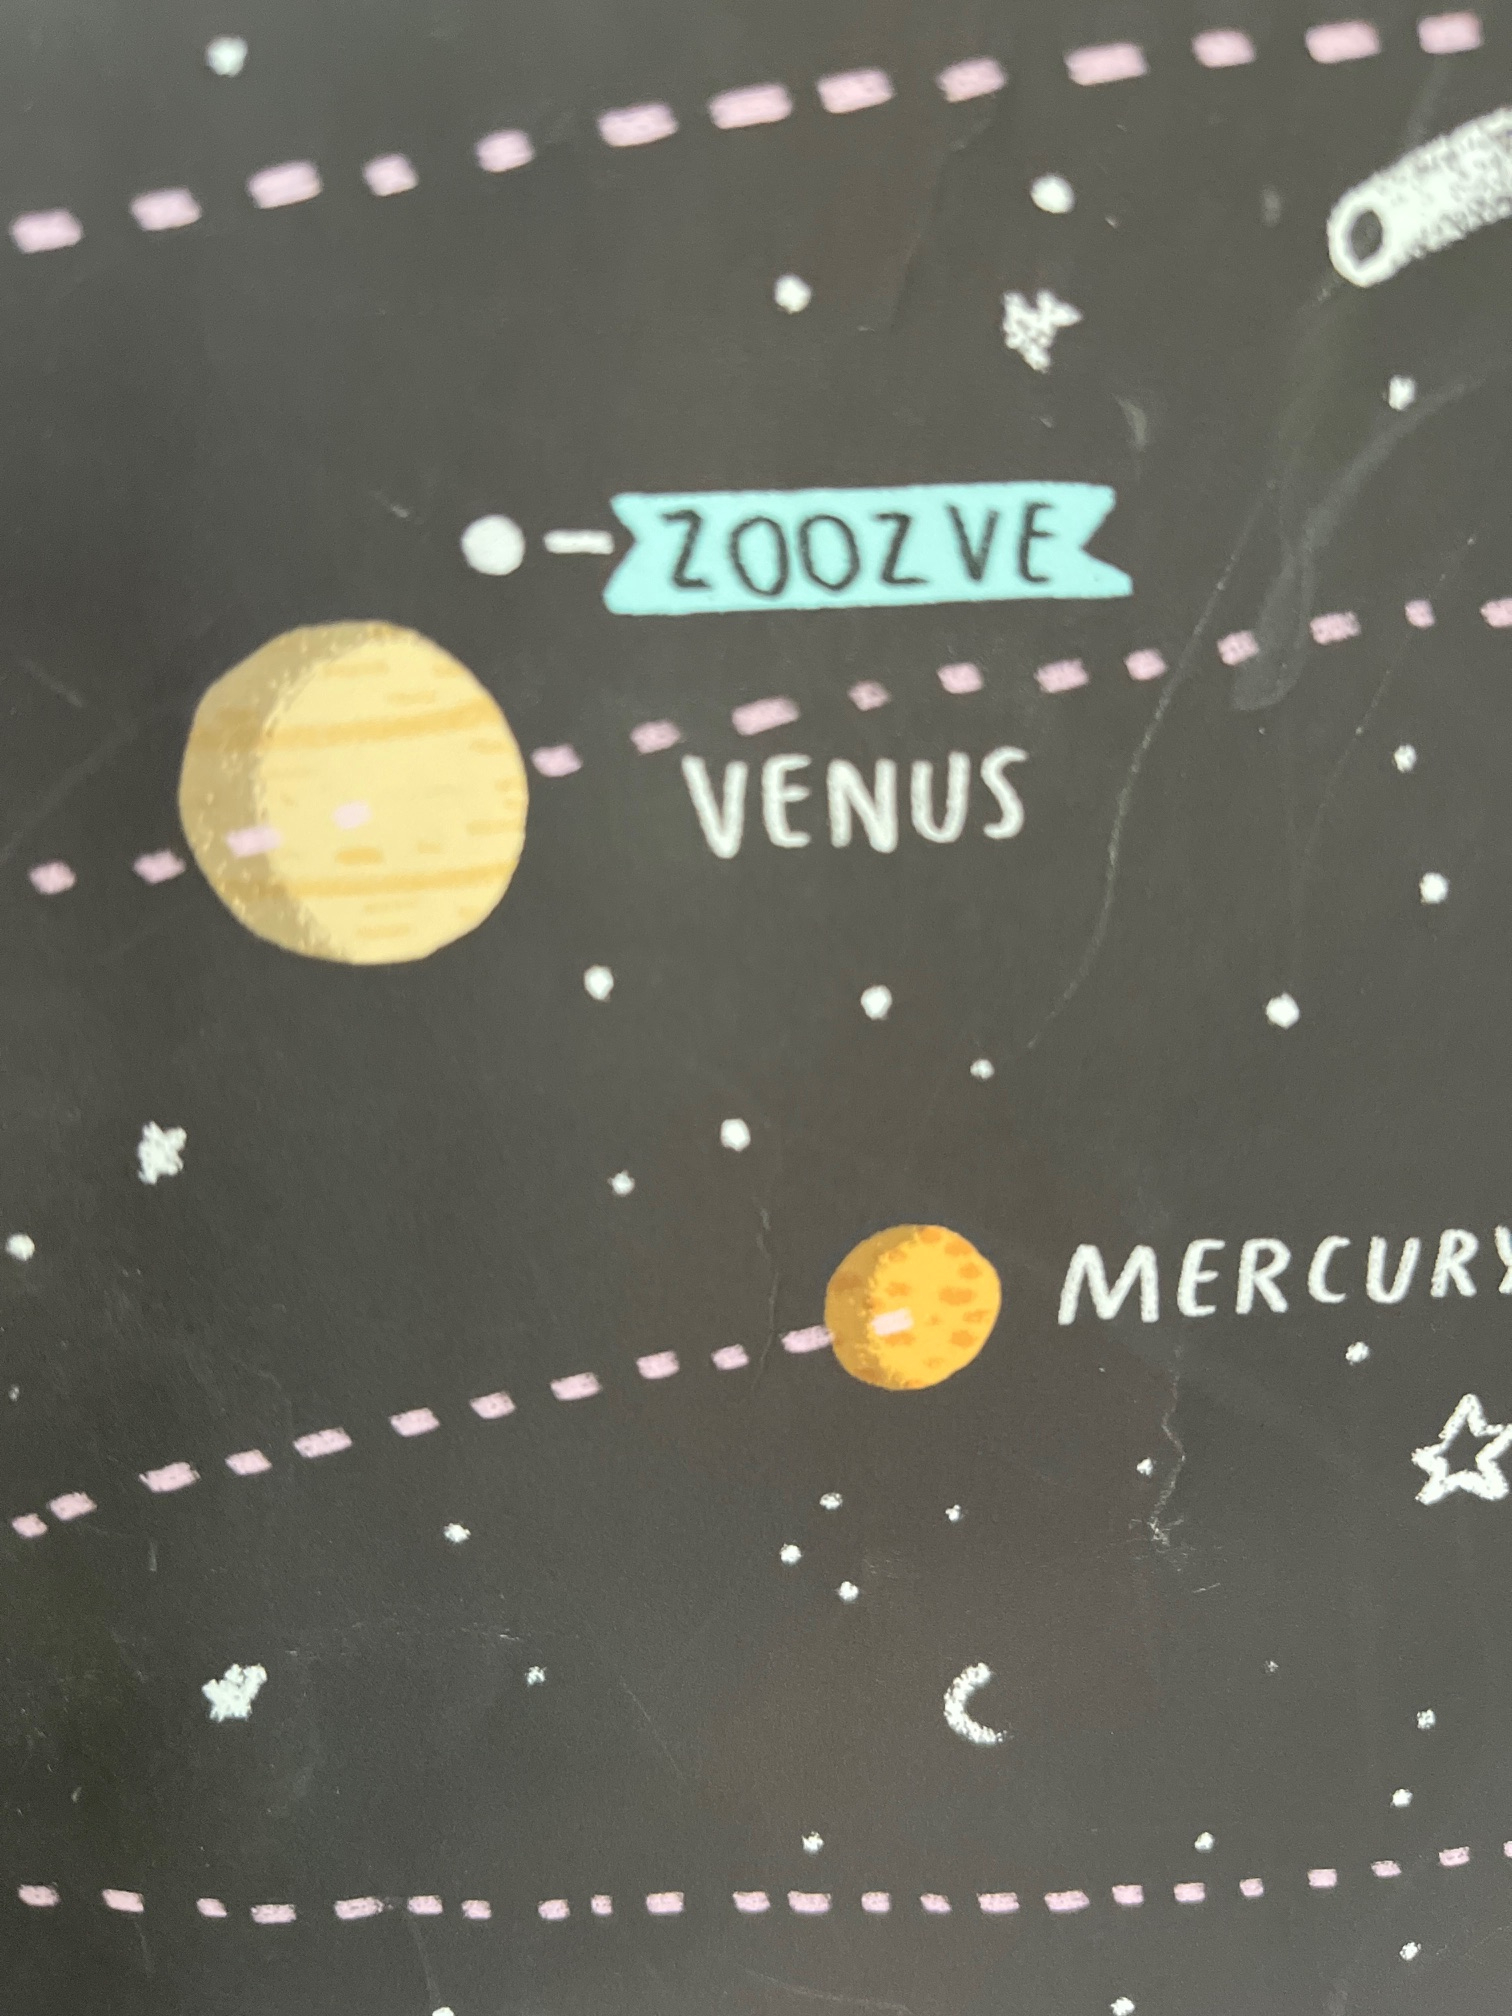 ZOOZVE
VENUS
MERCURY